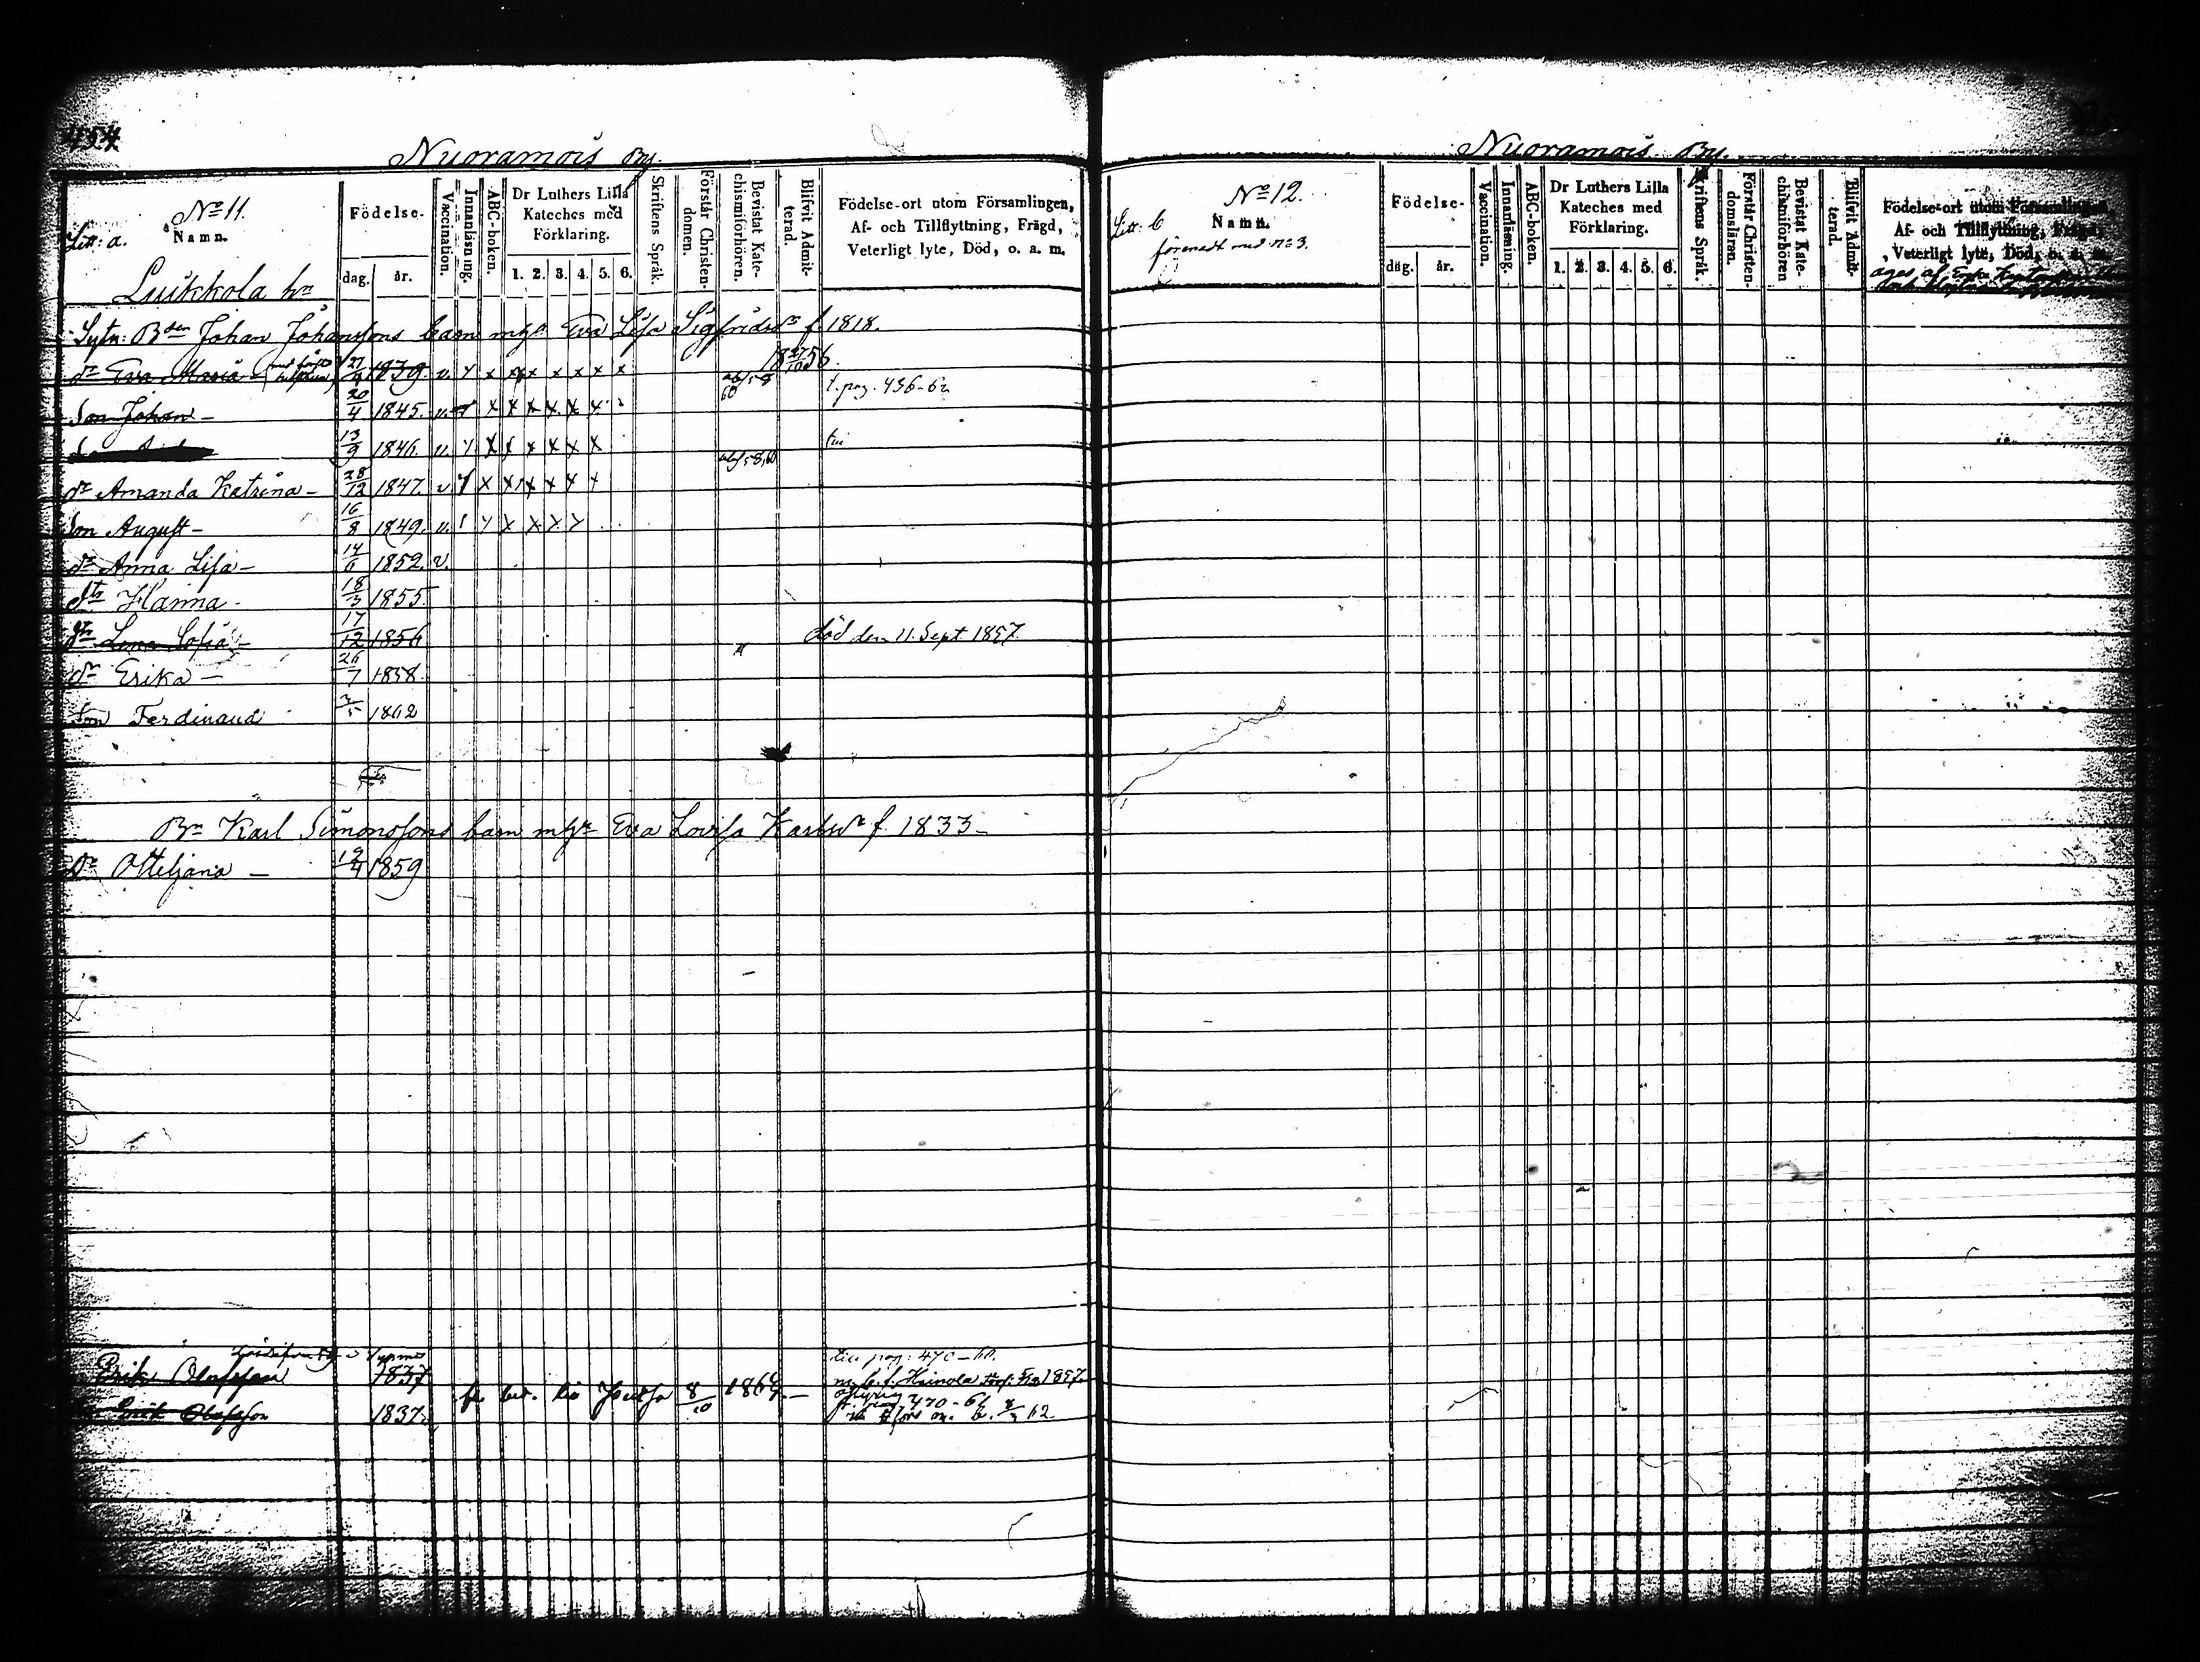 454
Nuoramois By.
No 11.
Litt: a. Namn.
Luikkola hn
Födelse-
dag. år.
Vaccination.
Innanläsning.
ABC-boken.
Dr Luthers Lilla Kateches med Förklaring.
1. 2. 3. 4. 5. 6.
Skriftens Språk.
Förstår Christendomen.
Bevistat Katechismiförhören.
Blifvit Admitterad.
Födelse-ort utom Församlingen,
Af- och Tillflyttning, Frägd,
Veterligt lyte, Död, o. a. m.
Sytn: Bden Johan Johanssons barn m hn Eva Lisa Sigfridsdr f 1818.
dr Eva Maria 27/9 1839. v. x x x x x x x x 18 27/10 56.
Son Johan – 20/4 1845. v. x x x x x x x 60 t. pag. 436-62
13/9 1846. v. x x x x x x x
dr Amanda Katrina – 28/12 1847. v x x x x x x x
Son August – 16/8 1849. v. x x x x x
dr Anna Lisa – 14/6 1852. v.
dtr Hanna – 18/3 1855.
dtr Lena Sofia – 17/12 1856 död den 11. Sept 1857
dr Erika – 26/7 1858.
Son Ferdinand 3/5 1862
Bn Karl Simonssons barn m hn Eva Lovisa Karlsdr f. 1833 –
Dr Otteljana – 19/4 1859
till pag: 470 – 60.
Erik Olofsson 1837 m. b. f. Heinola 1857.
8/10 1864. –
Erik Olofsson 1837. 470 - 61
62
Nuoramois By.
No 12.
Litt: b Namn.
förenadt med no 3.
Födelse-
dag. år.
Vaccination.
Innanläsning.
ABC-boken.
Dr Luthers Lilla Kateches med Förklaring.
1. 2. 3. 4. 5. 6.
Skriftens Språk.
Förstår Christendomsläran.
Bevistat Katechismiförhören
Blifvit Admitterad.
Födelse-ort utom Församlingen,
Af- och Tillflyttning, Frägd,
Veterligt lyte, Död, o. a. m.
ages af